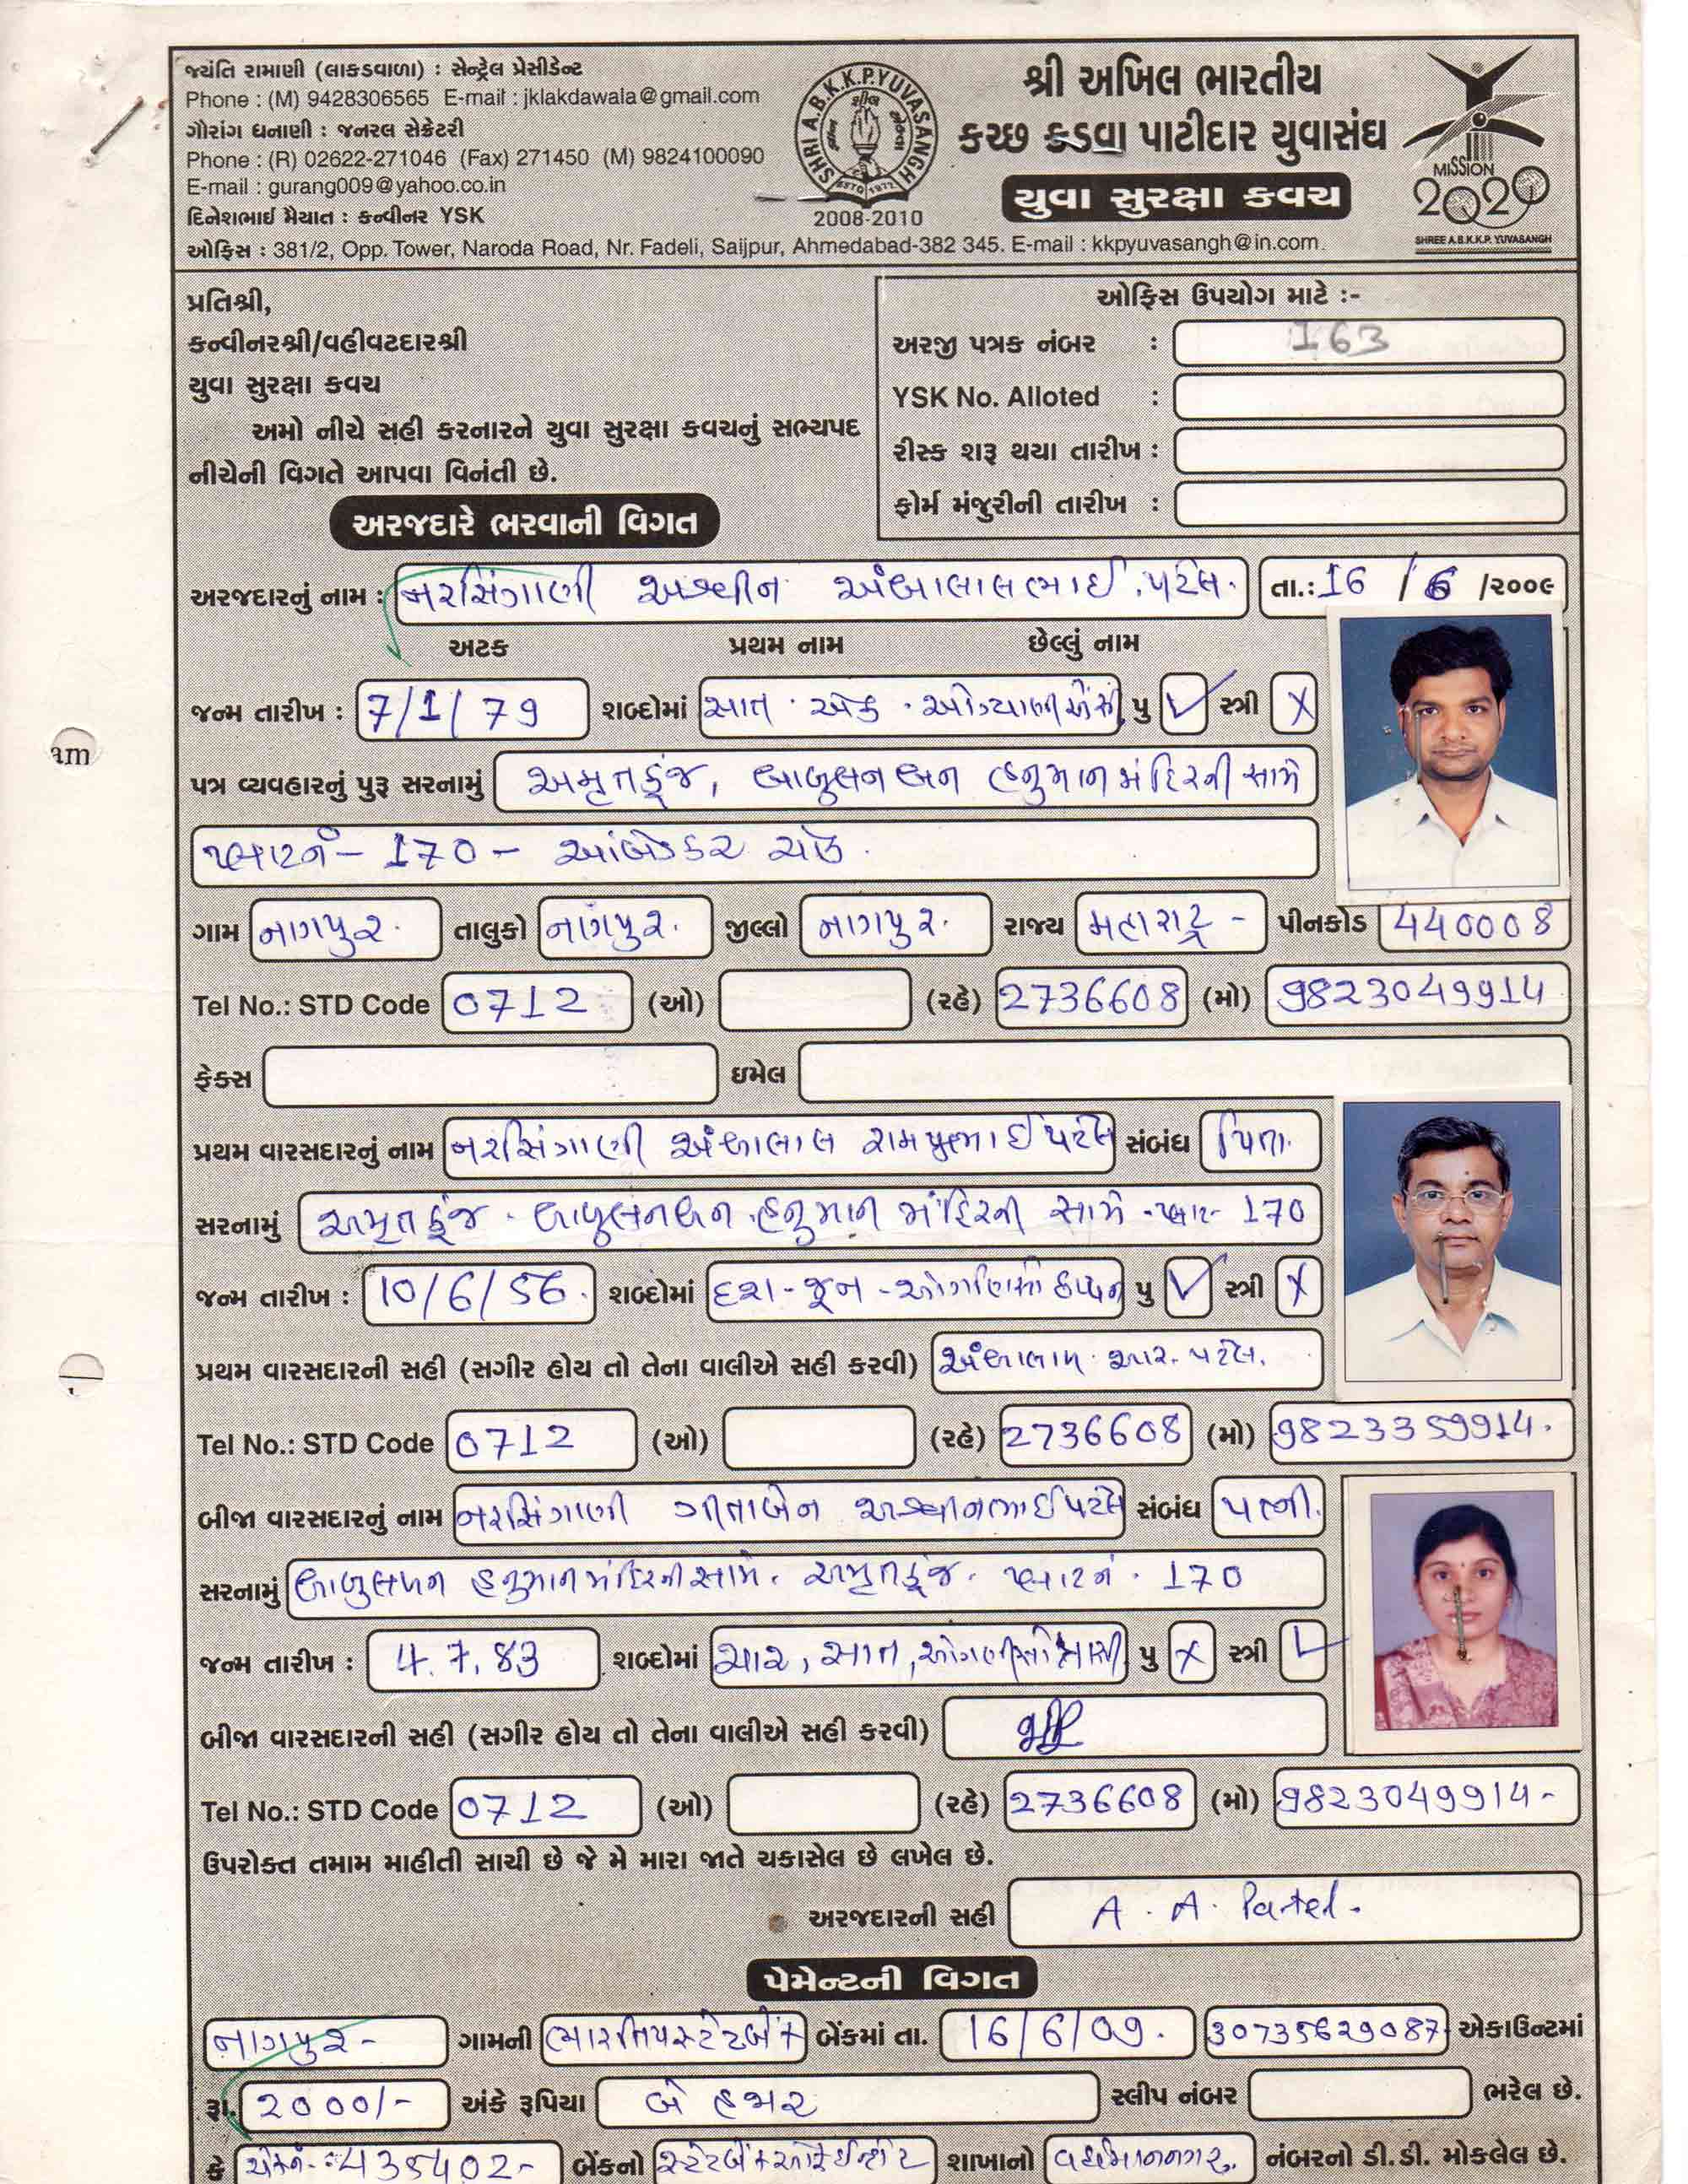 જયંતિ રામાણી (લાકડાવાળા) : સેન્ટ્રલ પ્રેસીડેન્ટ
Phone : (M) 9428306565 E-mail : jklakdawala@gmail.com
ગૌરાંગ ધનાણી : જનરલ સેક્રેટરી
Phone : (R) 02622-271046 (Fax) 271450 (M) 9824100090
E-mail : gurang009@yahoo.co.in
દિનેશભાઈ મૈયાત : કન્વીનર YSK
ઓફિસ : 381/2, Opp. Tower, Naroda Road, Nr. Fadeli, Saijpur, Ahmedabad-382 345. E-mail : kkpyuvasangh@in.com.
SHRI A.B.K.K.P.YUVASANGH
ESTD 1972
2008-2010
શ્રી અખિલ ભારતીય
કચ્છ કડવા પાટીદાર યુવાસંઘ
યુવા સુરક્ષા કવચ
MISSION
2020
SHREE A.B.K.K.P. YUVASANGH
પ્રતિશ્રી,
કન્વીનરશ્રી/વહીવટદારશ્રી
યુવા સુરક્ષા કવચ
અમો નીચે સહી કરનારને યુવા સુરક્ષા કવચનું સભ્યપદ
નીચેની વિગતે આપવા વિનંતી છે.
ઓફિસ ઉપયોગ માટે :-
અરજી પત્રક નંબર : 163
YSK No. Alloted :
રીસ્ક શરૂ થયા તારીખ :
ફોર્મ મંજુરીની તારીખ :
અરજદારે ભરવાની વિગત
અરજદારનું નામ : નરસિંગાણી અશ્વીન અંબાલાલભાઈ પટેલ. તા.: 16 / 6 /૨૦૦૯
અટક પ્રથમ નામ છેલ્લું નામ
જન્મ તારીખ : 7/1/79 શબ્દોમાં સાત . એક . પુ ✓ સ્ત્રી X
પત્ર વ્યવહારનું પુરૂ સરનામું અમૃતકુંજ, બાબુલનબન હનુમાન મંદિરની સામે
પ્લાટનં - 170 - આંબેડકર ચોક.
ગામ નાગપુર. તાલુકો નાગપુર. જીલ્લો નાગપુર. રાજ્ય મહારાષ્ટ્ર - પીનકોડ 440008
Tel No.: STD Code 0712 (ઓ) (રહે) 2736608 (મો) 9823049914
ફેક્સ ઇમેલ
પ્રથમ વારસદારનું નામ નરસિંગાણી અંબાલાલ પટેલ સંબંધ પિતા.
સરનામું અમૃતકુંજ . બાબુલનબન હનુમાન મંદિરની સામે - પ્લાટ - 170
જન્મ તારીખ : 10/6/56. શબ્દોમાં દશ - જૂન - પુ ✓ સ્ત્રી X
પ્રથમ વારસદારની સહી (સગીર હોય તો તેના વાલીએ સહી કરવી) અંબાલાલ આર. પટેલ.
Tel No.: STD Code 0712 (ઓ) (રહે) 2736608 (મો) 9823359914.
બીજા વારસદારનું નામ નરસિંગાણી ગીતાબેન અશ્વીનભાઈ પટેલ સંબંધ પત્ની.
સરનામું હનુમાન મંદિરની સામે. અમૃતકુંજ. પ્લાટનં . 170
જન્મ તારીખ : 4.7.83 શબ્દોમાં ચાર, સાત, પુ X સ્ત્રી ✓
બીજા વારસદારની સહી (સગીર હોય તો તેના વાલીએ સહી કરવી)
Tel No.: STD Code 0712 (ઓ) (રહે) 2736608 (મો) 9823049914-
ઉપરોક્ત તમામ માહીતી સાચી છે જે મે મારા જાતે ચકાસેલ છે લખેલ છે.
અરજદારની સહી A. A. Patel.
પેમેન્ટની વિગત
નાગપુર - ગામની ભારતિય સ્ટેટ બેંક બેંકમાં તા. 16/6/09. 30735629087 એકાઉન્ટમાં
રૂા. 2000/- અંકે રૂપિયા બે હજાર સ્લીપ નંબર ભરેલ છે.
કે ચેકનં. 435402- બેંકનો સ્ટેટ બેંક ઓફ શાખાનો વર્ધમાનનગર. નંબરનો ડી.ડી. મોકલેલ છે.
am